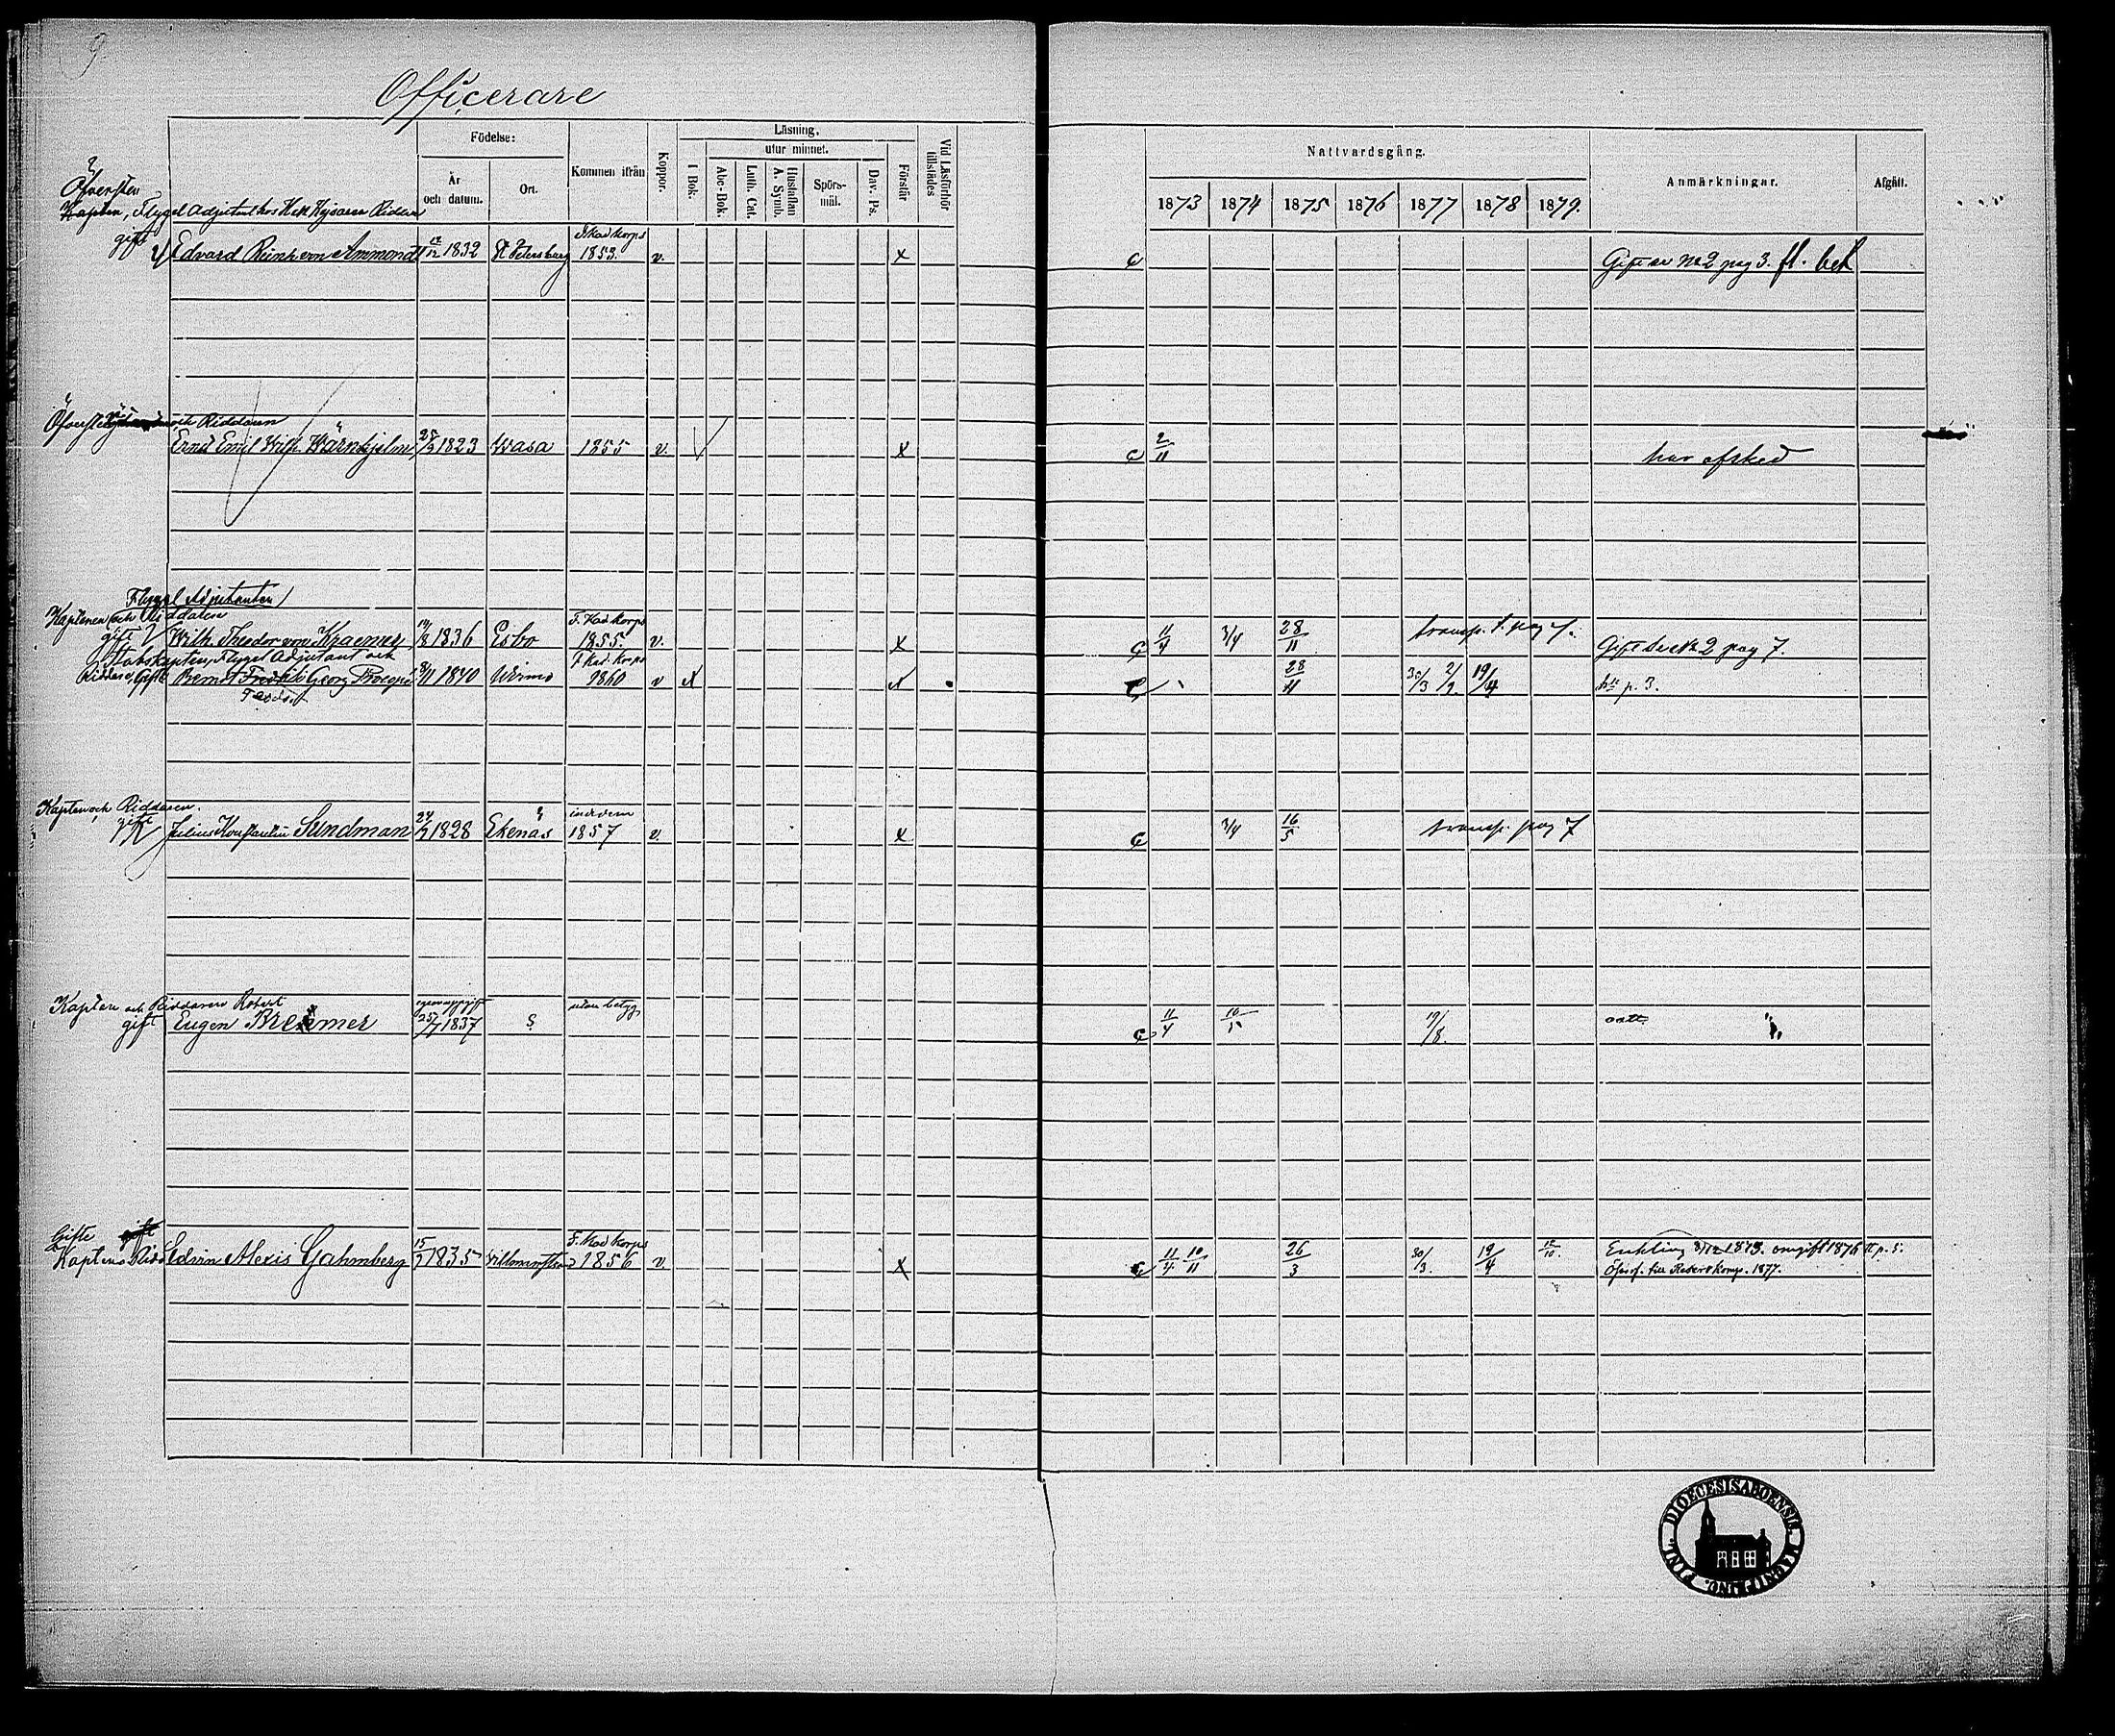 9
Officerare
Födelse:
Läsning.
utur minnet.
År och datum.
Ort.
Kommen ifrån
Koppor.
I Bok.
Abc-Bok.
Luth. Cat.
Hustaflan A. Symb.
Spörs-mål.
Dav. Ps.
Förstår
Vid Läsförhör tillstädes
Nattvardsgång.
1873 1874 1875 1876 1877 1878 1879.
Anmärkningar.
Afgått.
Öfversten
Kapten, Flygel Adjutant hos Kejsaren Riddare
gift Edvard Reinh. von Ammondt 1832 St Petersburg 1853. v. x Gift se No 2 pag 3. fl. bet
Öfverste och Riddaren
Ernst Emil Wilh. Wärnhjelm 1823 Wasa 1855 v. x 2/11 har afsked
Flygel Adjutanten
Kaptenen och Riddaren F. Kad korps
gift Wilh. Theodor von Kraemer 1836 Esbo 1855. v. x 11/4 3/4 28/11 transp. t. pag 7. Gift se No 2 pag 7
Stabskapten, Flygel Adjutant och F. Kad. Korps
Riddare, Gift Bernt Georg Procopé 8/11 1840 Wirmo 1860 v x x 28/11 30/3 19/4 p. 3.
Teodor
Kapten och Riddaren.
gift Julius Konstantin Sundman 24/7 1828 Ekenäs 1857 v. x 3/4 16/5 transp. pag 7
Kapten och Riddaren Robert utan betyg
gift Eugen Bremer 25/7 1837 11/4 19/8.
Gifte gift F. Kad korps
Kapten o Ridd Edvin Alexis Gahmberg 15/7 1835 Villmanstrand 1856 v. x 11/4 10/11 26/3 30/3. 19/4 12/10. Enkling 1873. omgift 1876 p. 5.
Öfverf. till Reservkomp. 1877.
DIOECESIS ABOENSIS